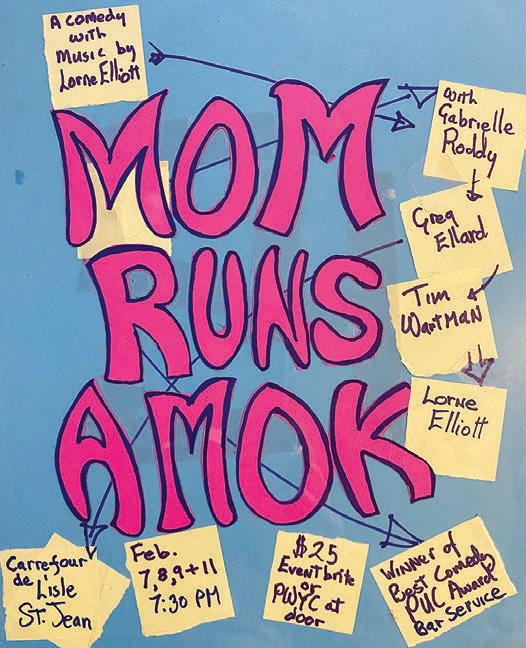 A comedy
with
Music by
Lorne Elliott
MOM
RUNS
AMOK
with
Gabrielle
Roddy
Greg
Ellard
Tim
Wartman
Lorne
Elliott
Carrefour
de L'Isle
St. Jean
Feb.
7,8,9+11
7:30 PM
$25
Eventbrite
or
PWYC at
door
Winner of
Best Comedy
PUC Award
Bar Service